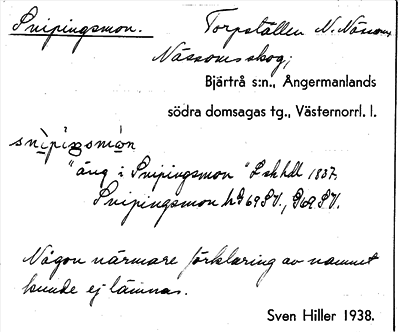 Snipingsmon. Torpställen N. Nässoms
Nässoms skog;
Bjärtrå s:n., Ångermanlands
södra domsagas tg., Västernorrl. l.
snìpiŋsmòn
"äng i Snipingsmon" L sk hdl 1837.
Snipingsmon
Någon närmare förklaring av namnet
kunde ej lämnas.
Sven Hiller 1938.